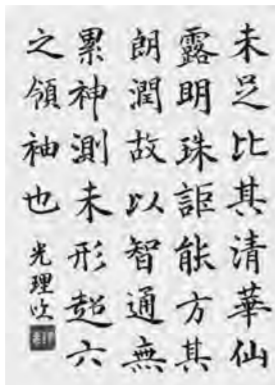 未足比其清華仙
露明珠詎能方其
朗潤故以智通無
累神測未形超六
之領袖也
光理